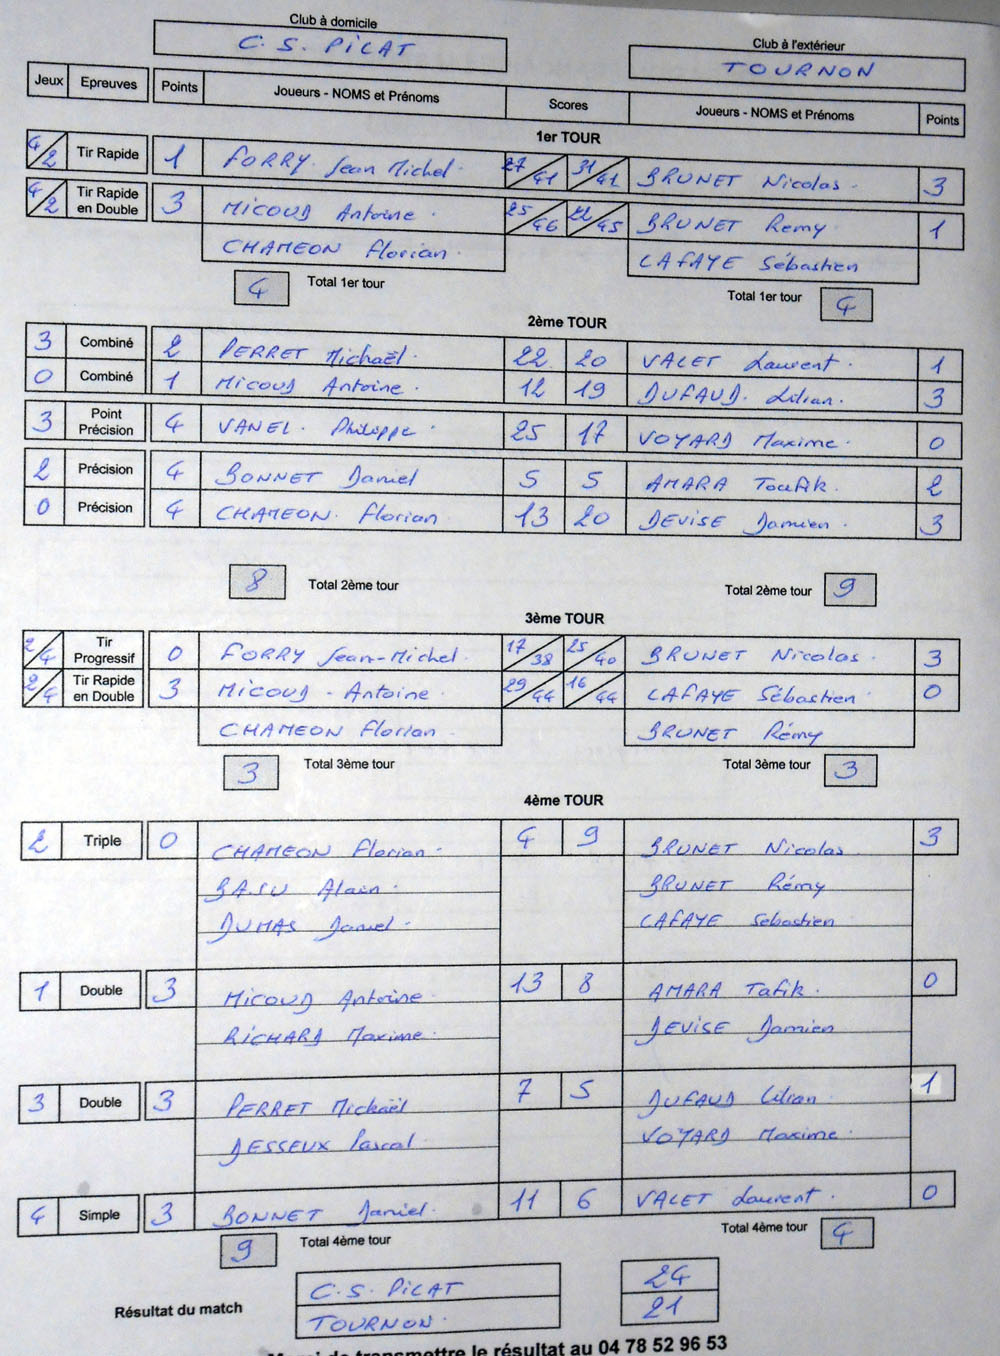 Club à domicile
C.S. PILAT
Club à l'extérieur
TOURNON
Jeux Epreuves Points Joueurs - NOMS et Prénoms Scores Joueurs - NOMS et Prénoms Points
1er TOUR
4/2 Tir Rapide 1 FORRY Jean Michel 27/41 31/41 BRUNET Nicolas 3
4/2 Tir Rapide en Double 3 MICOUD Antoine 25/46 22/45 BRUNET Remy 1
CHAMEON Florian LAFAYE Sébastien
4 Total 1er tour Total 1er tour 4
2ème TOUR
3 Combiné 2 PERRET Michaël 22 20 VALET Laurent 1
0 Combiné 1 MICOUD Antoine 12 19 DUFAUD Lilian 3
3 Point Précision 4 VANEL Philippe 25 17 VOYARD Maxime 0
2 Précision 4 BONNET Daniel 5 5 AMARA Toufik 2
0 Précision 4 CHAMEON Florian 13 20 DEVISE Damien 3
8 Total 2ème tour Total 2ème tour 9
3ème TOUR
2/4 Tir Progressif 0 FORRY Jean-Michel 17/38 25/40 BRUNET Nicolas 3
2/4 Tir Rapide en Double 3 MICOUD - Antoine 29/44 16/44 LAFAYE Sébastien 0
CHAMEON Florian BRUNET Rémy
3 Total 3ème tour Total 3ème tour 3
4ème TOUR
2 Triple 0 CHAMEON Florian 4 9 BRUNET Nicolas 3
BASU Alain BRUNET Rémy
DUMAS Daniel LAFAYE Sebastien
1 Double 3 MICOUD Antoine 13 8 AMARA Tafik 0
RICHARD Maxime DEVISE Damien
3 Double 3 PERRET Mickaël 7 5 DUFAUD Lilian 1
DESSEUX Pascal VOYARD Maxime
4 Simple 3 BONNET Daniel 11 6 VALET Laurent 0
9 Total 4ème tour Total 4ème tour 4
Résultat du match
C.S. PILAT 24
TOURNON 21
transmettre le résultat au 04 78 52 96 53